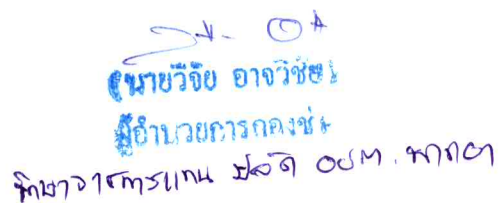 (นายวิจัย อาจวิชัย)
ผู้อำนวยการกองช่าง
รักษาราชการแทน ปลัด อบต.